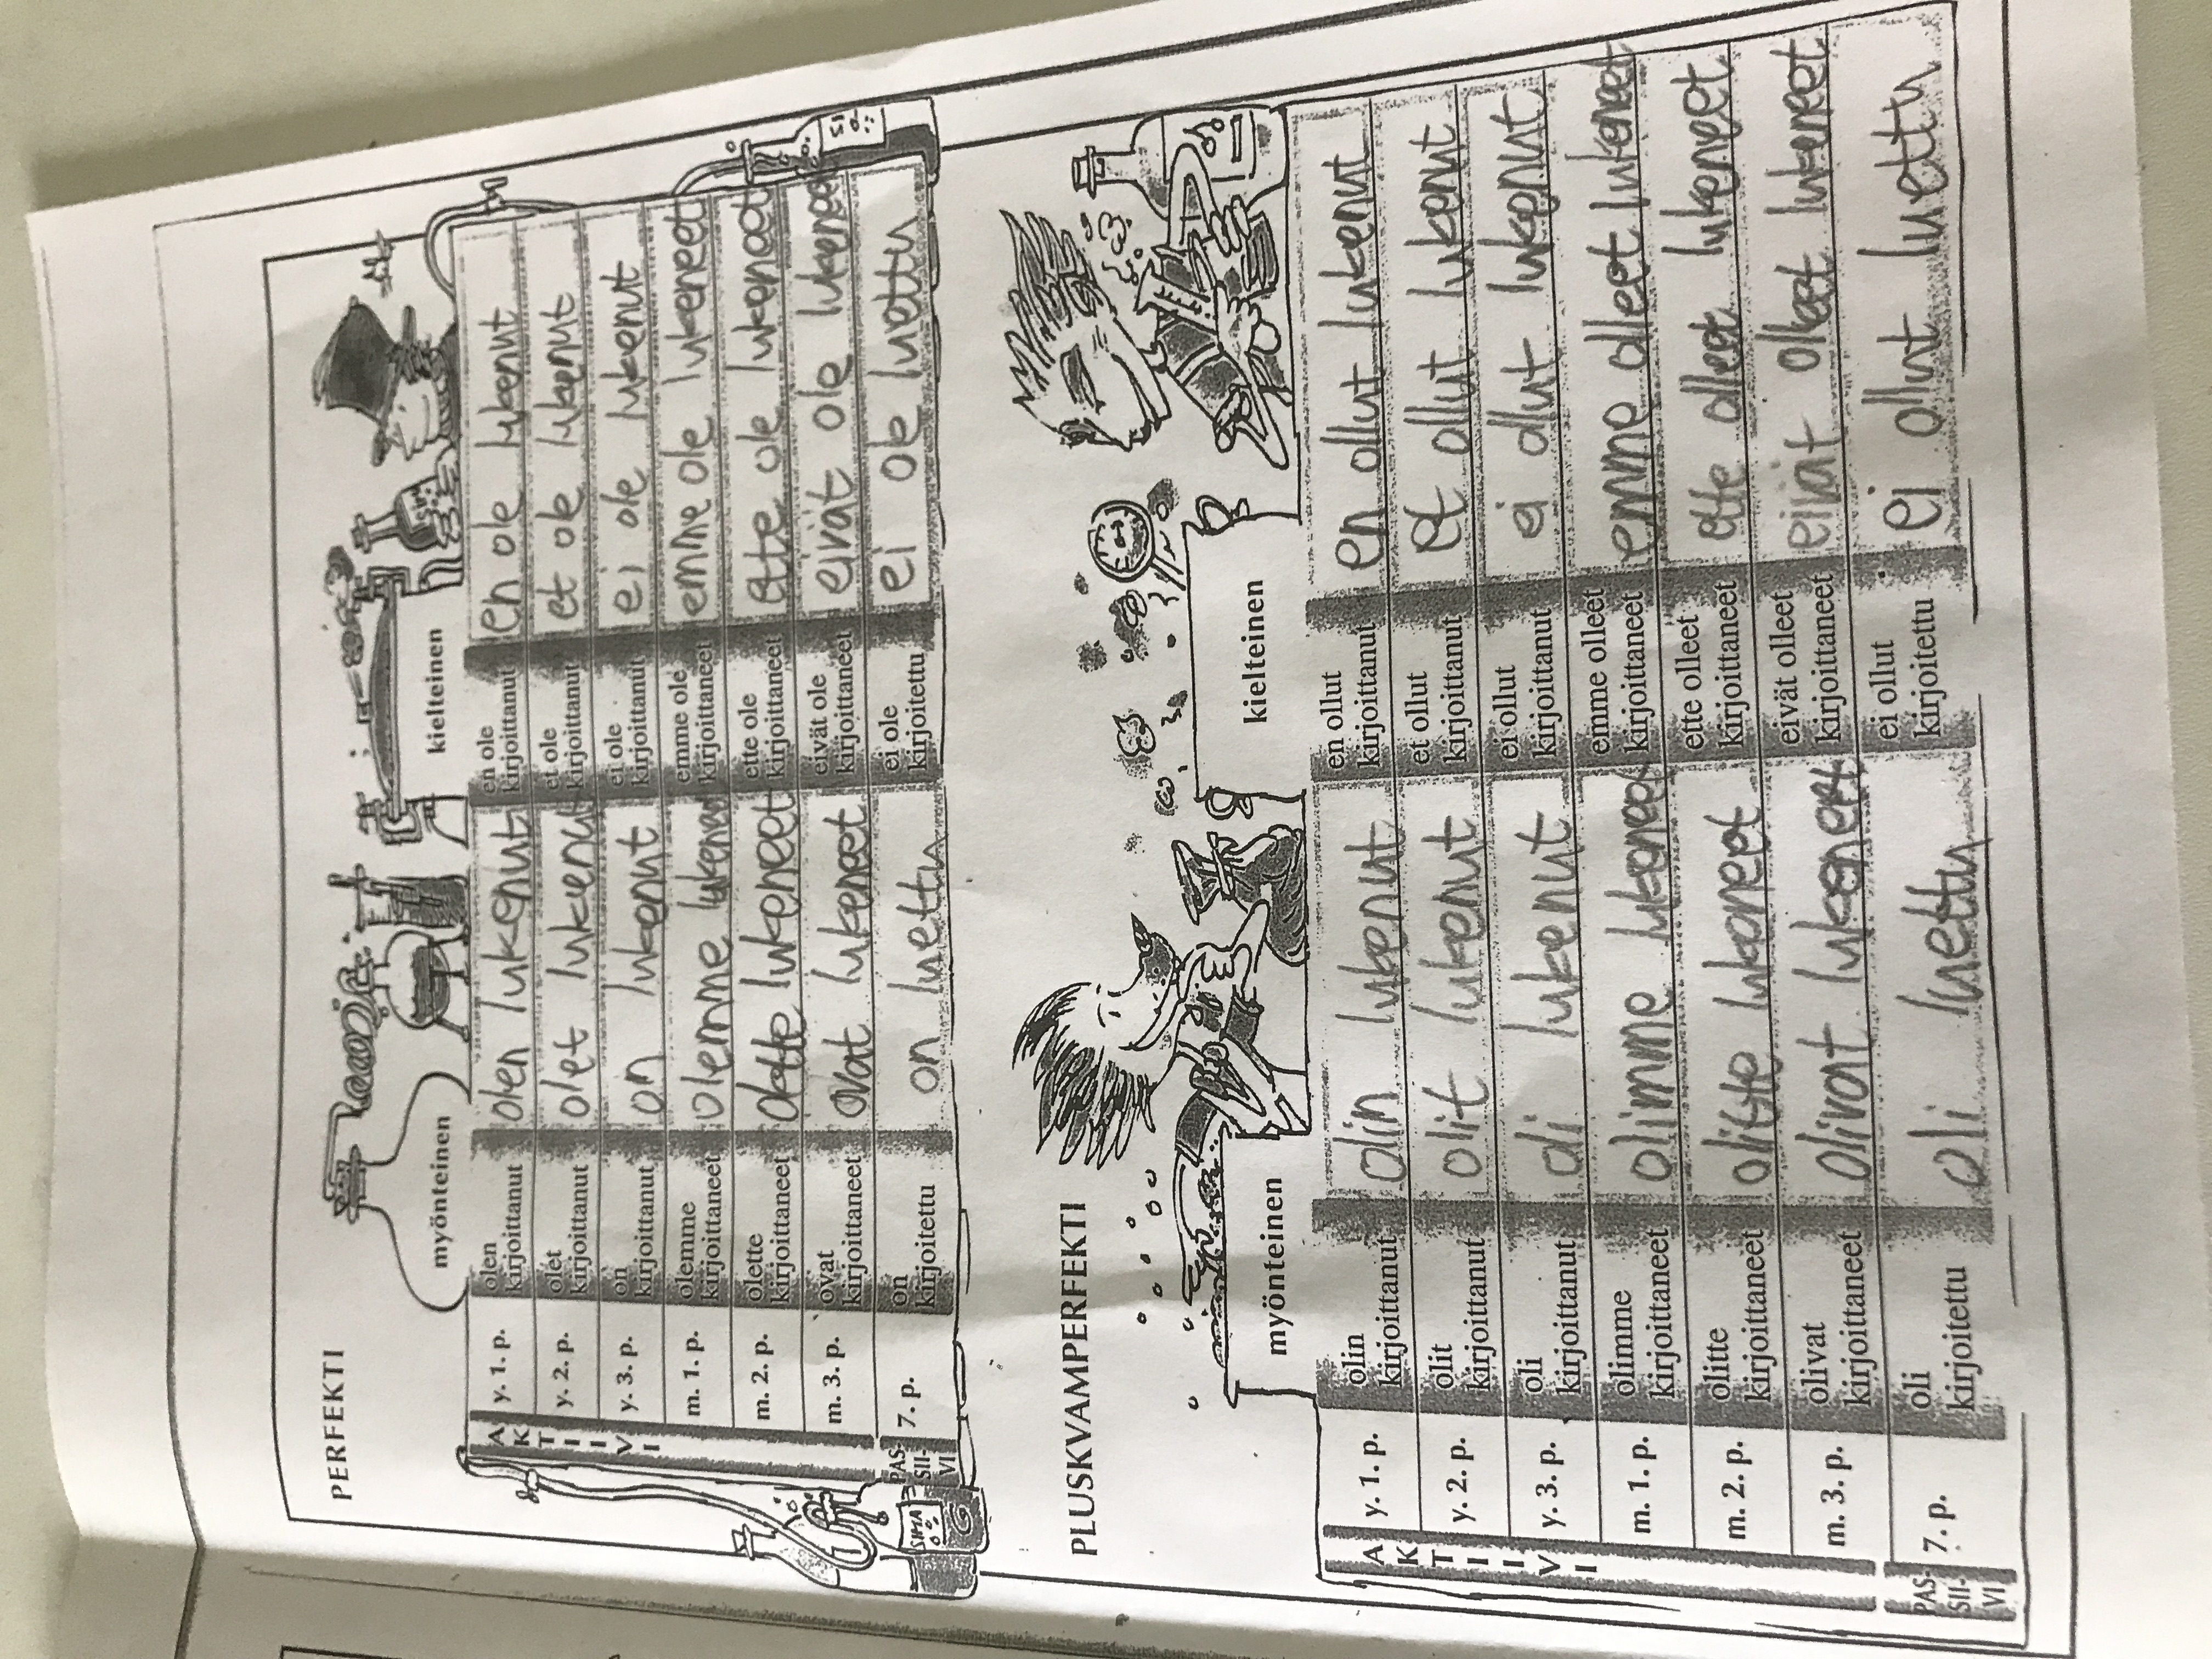 PERFEKTI
myönteinen
kielteinen
AKTIIVI
y. 1. p. olen kirjoittanut olen lukenut en ole kirjoittanut en ole lukenut
y. 2. p. olet kirjoittanut olet lukuenut et ole kirjoittanut et ole lukenut
y. 3. p. on kirjoittanut on lukenut ei ole kirjoittanut ei ole lukenut
m. 1. p. olemme kirjoittaneet olemme emme ole kirjoittaneet emme ole lukeneet
m. 2. p. olette kirjoittaneet olette lukeneet ette ole kirjoittaneet ette ole lukeneet
m. 3. p. ovat kirjoittaneet ovat lukeneet eivät ole kirjoittaneet eivät ole
PAS-SII-VI 7. p. on kirjoitettu on luettu ei ole kirjoitettu ei ole luettu
SIMA
PLUSKVAMPERFEKTI
myönteinen
kielteinen
AKTIIVI
y. 1. p. olin kirjoittanut olin lukenut en ollut kirjoittanut en ollut lukenut
y. 2. p. olit kirjoittanut olit lukenut et ollut kirjoittanut et ollut lukenut
y. 3. p. oli kirjoittanut oli lukenut ei ollut kirjoittanut ei ollut lukenut
m. 1. p. olimme kirjoittaneet olimme lukeneet emme olleet kirjoittaneet emme olleet lukeneet
m. 2. p. olitte kirjoittaneet olitte lukeneet ette olleet kirjoittaneet ette olleet lukeneet
m. 3. p. olivat kirjoittaneet olivat lukeneet eivät olleet kirjoittaneet eivät olleet lukeneet
PAS-SII-VI 7. p. oli kirjoitettu oli luettu ei ollut kirjoitettu ei ollut luettu